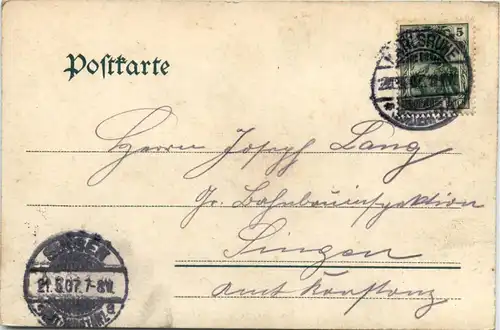 5
KARLSRUHE
Postkarte
Herrn Joseph Lang
Gr. Bahnbauinspektion
Singen
Amt Konstanz
SINGEN
21.5.07. 7-8V.